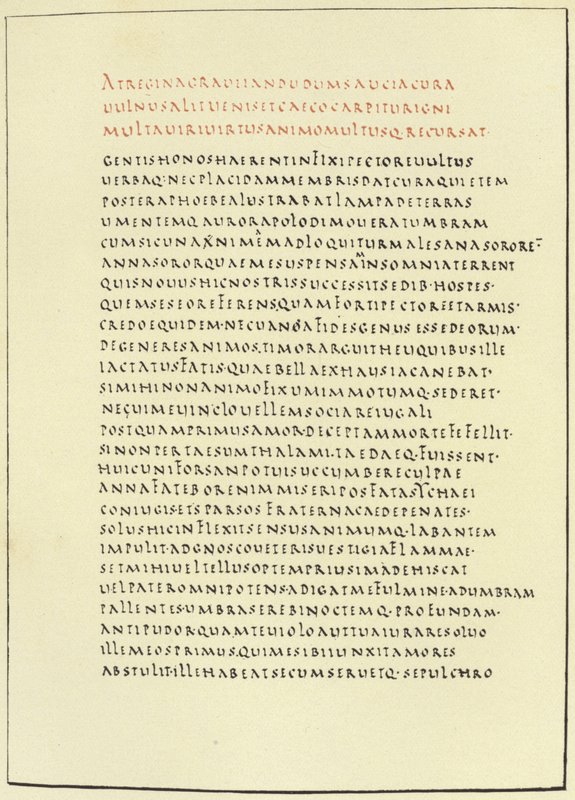 ATREGINAGRAUIIANDUDUMSAUCIACURA
UULNUSALITUENISETCAECOCARPITURIGNI
MULTAUIRIUIRTUSANIMOMULTUSQ·RECURSAT·
GENTISHONOSHAERENTINFIXIPECTOREUULTUS
UERBAQ·NECPLACIDAMMEMBRISDATCURAQUIETEM
POSTERAPHOEBEALUSTRABATLAMPADETERRAS
UMENTEMQ·AURORAPOLODIMOUERATUMBRAM
CUMSICUNANIMEMADLOQUITURMALESANASORORE
ANNASORORQUAEMESUSPENSAMINSOMNIATERRENT
QUISNOUUSHICNOSTRISSUCCESSITSEDIB·HOSPES·
QUEMSESEOREFERENS·QUAMFORTIPECTOREETARMIS·
CREDOEQUIDEM·NECUANAFIDESGENUSESSEDEORUM·
DEGENERESANIMOS·TIMORARGUITHEUQUIBUSILLE
IACTATUSFATIS·QUAEBELLAEXHAUSIACANEBAT·
SIMIHINONANIMOFIXUMIMMOTUMQ·SEDERET·
NECUIMEUINCLOUELLEMSOCIAREIUGALI
POSTQUAMPRIMUSAMOR·DECEPTAMMORTEFEFELLIT·
SINONPERTAESUMTHALAMI·TAEDAEQ·FUISSENT·
HUICUNIFORSANPOTUISUCCUMBERECULPAE
ANNAFATEBORENIMMISERIPOSFATASYCHAEI
CONIUGIS·ETSPARSOSFRATERNACAEDEPENATES·
SOLUSHICINFLEXITSENSUSANIMUMQ·LABANTEM
IMPULIT·ADGNOSCOUETERISUESTIGIAFLAMMAE·
SETMIHIUELTELLUSOPTEMPRIUSIMADEHISCAT
UELPATEROMNIPOTENS·ADIGATMEFULMINE·ADUMBRAM
PALLENTES·UMBRASEREBINOCTEMQ·PROFUNDAM·
ANTIPUDOR·QUAMTEUIOLOAUTTUAIURARESOLUO
ILLEMEOSPRIMUS·QUIMESIBIIUNXITAMORES
ABSTULIT·ILLEHABEATSECUMSERUETQ·SEPULCHRO